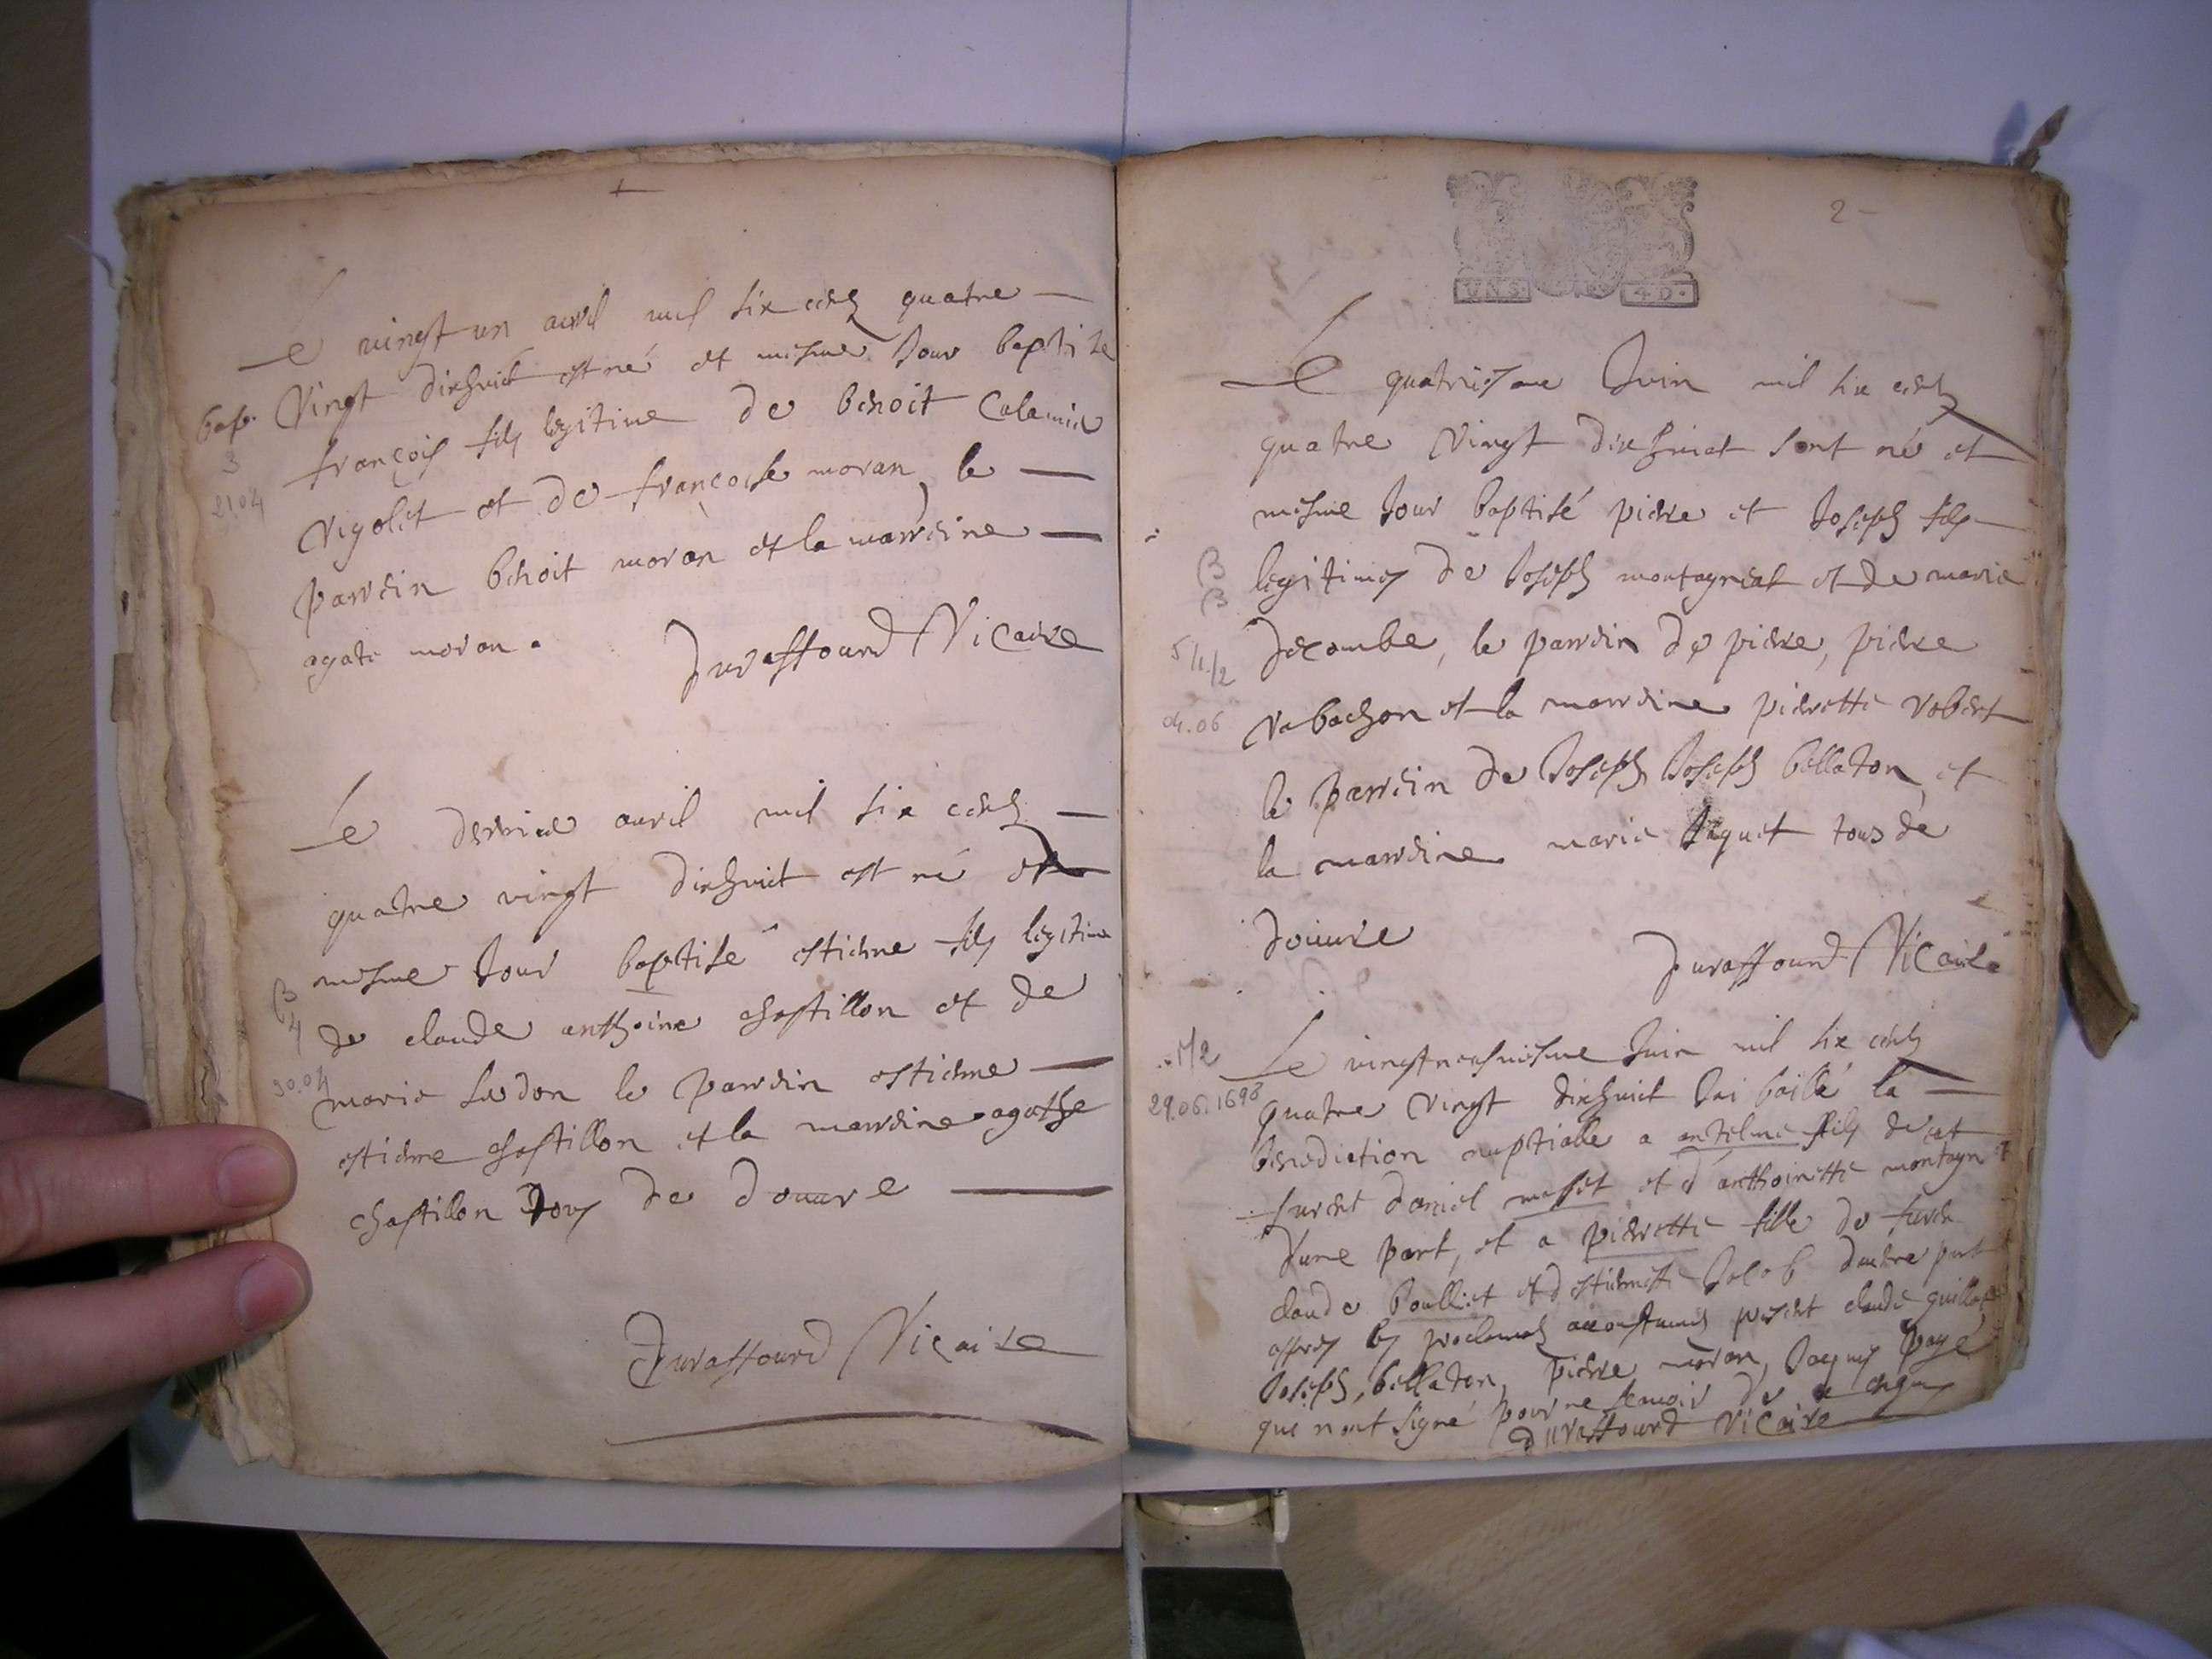 +
Le vingt un avril mil six cents quatre
Vingt dixhuit est né et mesme Jour baptisé
françois fils legitime de benoit Calemie
Vigolet et de francoise moran, le
parrein benoit moran et la marreine
agate moran.
Duraffourd Vicaire
bap.
3
21.04
Le dernier avril mil six cents
quatre vingt dixhuit est né et
mesme Jour baptisé estienne fils legitime
de claude anthoine chastillon et de
marie ludon le parrein estienne
estienne chastillon et la marreine agathe
chastillon tous de douvre
Duraffourd Vicaire
B
4
30.04
2
UNS. 4D.
Le quatriesme Juin mil six cents
quatre Vingt dixhuict sont né et
mesme Jour baptisé pierre et Joseph fils
legitimes de Joseph montagniat et de marie
decombe, le parrein de pierre, pierre
rabachon et la marreine pierrette robert
le parrein de Joseph Joseph bellaton et
la marreine marie Juquet tous de
douvre
Duraffourd Vicaire
B
B
5/1/2
04.06
Le vingtneufviesme Juin mil six cents
quatre Vingt dixhuict Jai baillé la
benediction nuptialle a antelme fils de
furent daniel masset et d'anthoinette montagn
d'une part, et a pierrette fille de
claude boulliet et d estiennette Jacob dautre part
appres les proclamas accoustumes present claude
Joseph bellaton, pierre moran, Jaques payé
que n ont signé pour ne scavoir de ce enquis
duraffourd Vicaire
M2
29.06.1698